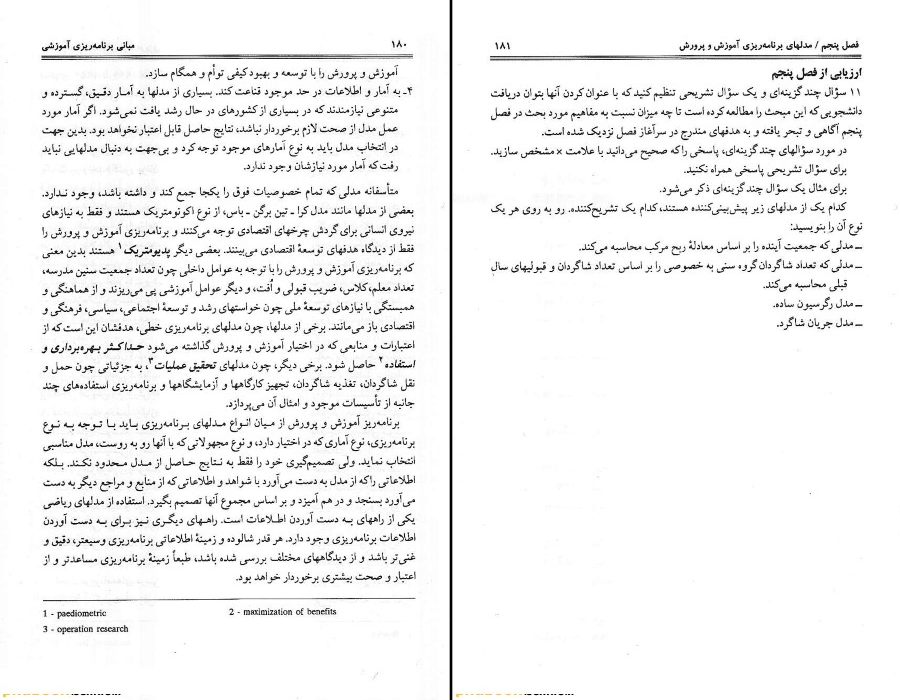 ۱۸۰ مبانی برنامه‌ریزی آموزشی
آموزش و پرورش را با توسعه و بهبود کیفی توأم و همگام سازد.
۴ـ به آمار و اطلاعات در حد موجود قناعت کند. بسیاری از مدلها به آمار دقیق، گسترده و
متنوعی نیازمندند که در بسیاری از کشورهای در حال رشد یافت نمی‌شود. اگر آمار مورد
عمل مدل از صحت لازم برخوردار نباشد، نتایج حاصل قابل اعتبار نخواهد بود. بدین جهت
در انتخاب مدل باید به نوع آمارهای موجود توجه کرد و بی‌جهت به دنبال مدلهایی نباید
رفت که آمار مورد نیازشان وجود ندارد.
متأسفانه مدلی که تمام خصوصیات فوق را یکجا جمع کند و داشته باشد، وجود ندارد.
بعضی از مدلها مانند مدل کرا ـ تین برگن ـ باس، از نوع اکونومتریک هستند و فقط به نیازهای
نیروی انسانی برای گردش چرخهای اقتصادی توجه می‌کنند و برنامه‌ریزی آموزش و پرورش را
فقط از دیدگاه هدفهای توسعهٔ اقتصادی می‌بینند. بعضی دیگر پدیومتریک۱ هستند بدین معنی
که برنامه‌ریزی آموزش و پرورش را با توجه به عوامل داخلی چون تعداد جمعیت سنین مدرسه،
تعداد معلم، کلاس، ضریب قبولی و اُفت، و دیگر عوامل آموزشی پی می‌ریزند و از هماهنگی و
همبستگی با نیازهای توسعهٔ ملی چون خواستهای رشد و توسعهٔ اجتماعی، سیاسی، فرهنگی و
اقتصادی باز می‌مانند. برخی از مدلها، چون مدلهای برنامه‌ریزی خطی، هدفشان این است که از
اعتبارات و منابعی که در اختیار آموزش و پرورش گذاشته می‌شود حداکثر بهره‌برداری و
استفاده۲ حاصل شود. برخی دیگر، چون مدلهای تحقیق عملیات۳، به جزئیاتی چون حمل و
نقل شاگردان، تغذیه شاگردان، تجهیز کارگاهها و آزمایشگاهها و برنامه‌ریزی استفاده‌های چند
جانبه از تأسیسات موجود و امثال آن می‌پردازد.
برنامه‌ریز آموزش و پرورش از میان انواع مدلهای برنامه‌ریزی باید با توجه به نوع
برنامه‌ریزی، نوع آماری که در اختیار دارد، و نوع مجهولاتی که با آنها رو به روست، مدل مناسبی
انتخاب نماید. ولی تصمیم‌گیری خود را فقط به نتایج حاصل از مدل محدود نکند. بلکه
اطلاعاتی را که از مدل به دست می‌آورد با شواهد و اطلاعاتی که از منابع و مراجع دیگر به دست
می‌آورد بسنجد و در هم آمیزد و بر اساس مجموع آنها تصمیم بگیرد. استفاده از مدلهای ریاضی
یکی از راههای به دست آوردن اطلاعات است. راههای دیگری نیز برای به دست آوردن
اطلاعات برنامه‌ریزی وجود دارد. هر قدر شالوده و زمینهٔ اطلاعاتی برنامه‌ریزی وسیعتر، دقیق و
غنی‌تر باشد و از دیدگاههای مختلف بررسی شده باشد، طبعاً زمینهٔ برنامه‌ریزی مساعدتر و از
اعتبار و صحت بیشتری برخوردار خواهد بود.
1 - paediometric 2 - maximization of benefits
3 - operation research
فصل پنجم / مدلهای برنامه‌ریزی آموزش و پرورش ۱۸۱
ارزیابی از فصل پنجم
۱۱ سؤال چند گزینه‌ای و یک سؤال تشریحی تنظیم کنید که با عنوان کردن آنها بتوان دریافت
دانشجویی که این مبحث را مطالعه کرده است تا چه میزان نسبت به مفاهیم مورد بحث در فصل
پنجم آگاهی و تبحر یافته و به هدفهای مندرج در سرآغاز فصل نزدیک شده است.
در مورد سؤالهای چند گزینه‌ای، پاسخی را که صحیح می‌دانید با علامت × مشخص سازید.
برای سؤال تشریحی پاسخی همراه نکنید.
برای مثال یک سؤال چند گزینه‌ای ذکر می‌شود.
کدام یک از مدلهای زیر پیش‌بینی‌کننده هستند، کدام یک تشریح‌کننده. رو به روی هر یک
نوع آن را بنویسید:
ــ مدلی که جمعیت آینده را بر اساس معادلهٔ ربح مرکب محاسبه می‌کند.
ــ مدلی که تعداد شاگردان گروه سنی به خصوصی را بر اساس تعداد شاگردان و قبولیهای سال
قبلی محاسبه می‌کند.
ــ مدل رگرسیون ساده.
ــ مدل جریان شاگرد.